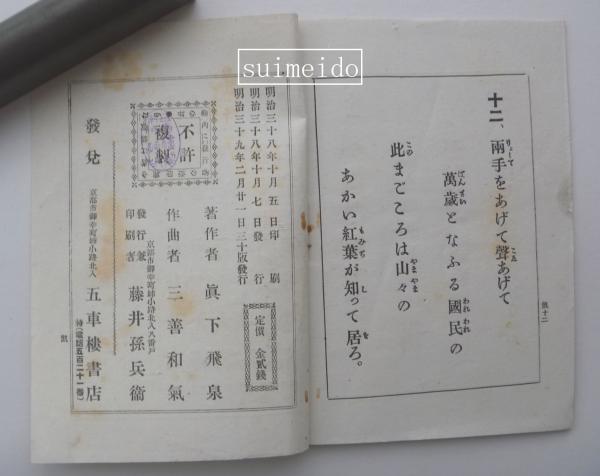 suimeido
凱十二
十二、兩手をあげて聲あげて
萬歳となふる國民の
此まごころは山々の
あかい紅葉が知って居ろ。
明治三十八年十月五日印刷
明治三十八年十月七日發行
明治三十九年二月廿一日三十版發行
定價金貳錢
不許
複製
著作者 眞下飛泉
作曲者 三善和氣
京都市御幸町姉小路北入八番戸
發行兼
印刷者 藤井孫兵衞
京都市御幸町姉小路北入
發兌 五車樓書店
特(電話五百二十一番)
凱